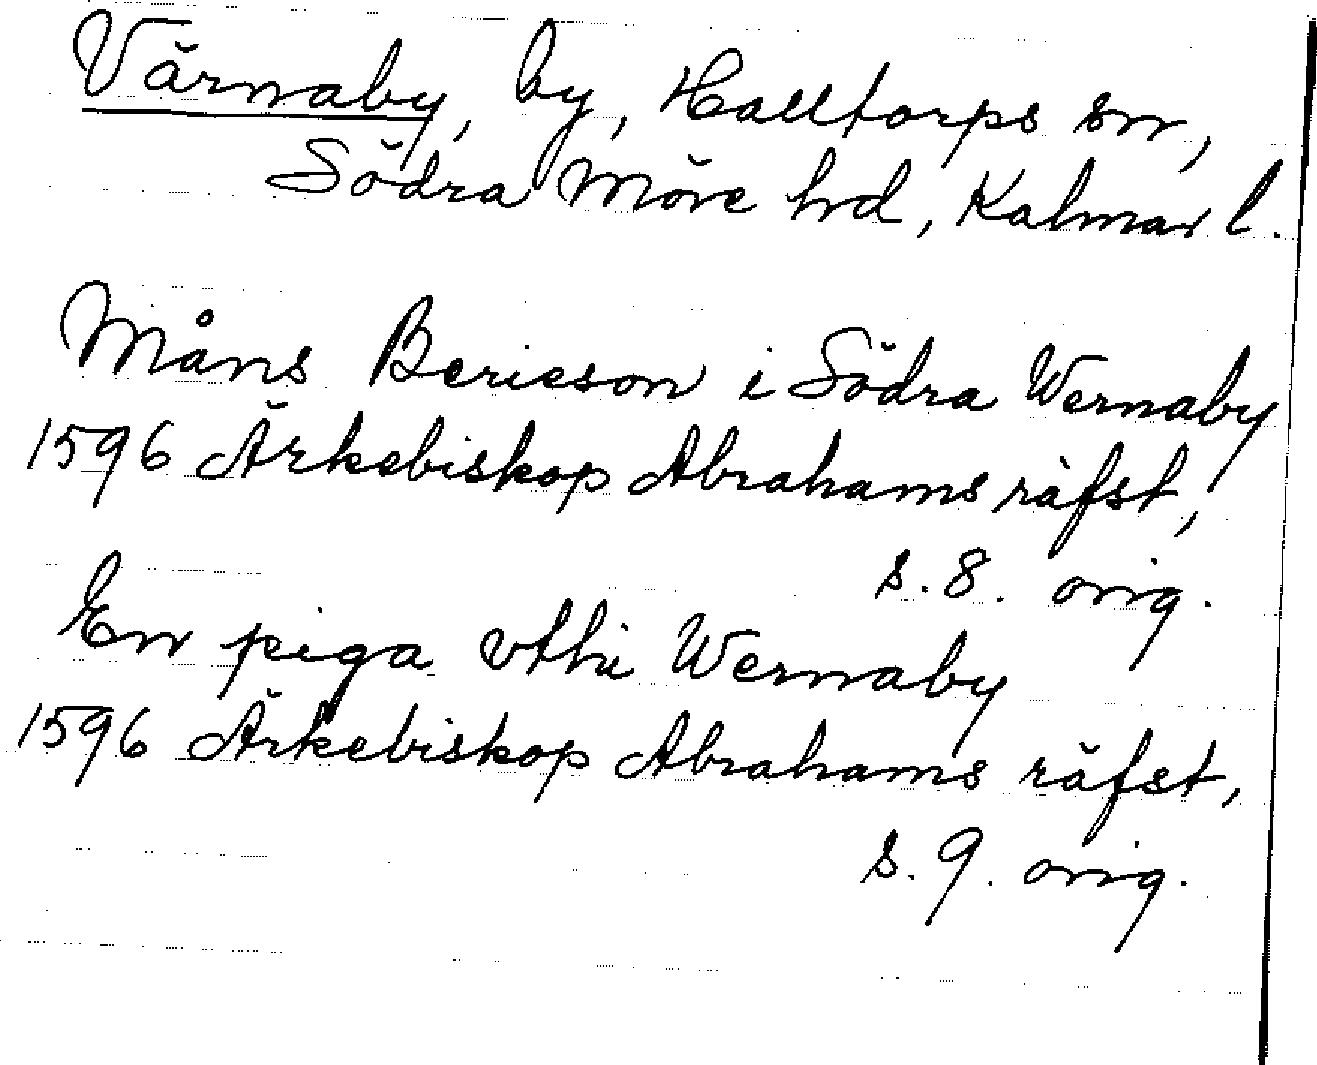 Värnaby, by, Halltorps sn,
Södra Möre hrd, Kalmar l.
Måns Bericson i Södra Wernaby
1596 Ärkebiskop Abrahams räfst,
s. 8. orig.
En piga vthi Wernaby
1596 Ärkebiskop Abrahams räfst,
s. 9. orig.